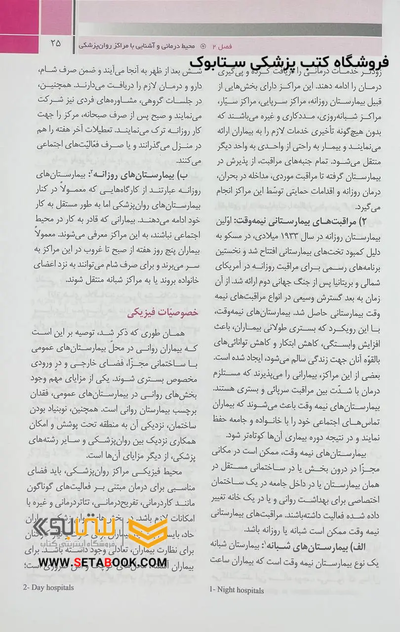 فصل ۲ محیط درمانی و آشنایی با مراکز روان‌پزشکی
۲۵
فروشگاه کتب پزشکی ستابوک
زودتر خدمات درمانی را دریافت کرده و پی‌گیری
درمان را ادامه دهند. این مراکز دارای بخش‌هایی از
قبیل بیمارستان روزانه، مراکز سرپایی، مراکز سیّار،
مراکز شبانه‌روزی، مددکاری و غیره می‌باشند که
بدون هیچ‌گونه تأخیری خدمات لازم را به بیماران ارائه
می‌نمایند و بیمار به راحتی از واحدی به واحد دیگر
منتقل می‌شود. تمام جنبه‌های مراقبت، از پذیرش در
بیمارستان گرفته تا مراقبت موردی، مداخله در بحران،
درمان روزانه و اقدامات حمایتی توسط این مراکز انجام
می‌گیرد.
۲) مراقبت‌های بیمارستانی نیمه‌وقت: اوّلین
بیمارستان روزانه در سال ۱۹۳۳ میلادی، در مسکو به
دلیل کمبود تخت‌های بیمارستانی افتتاح شد و نخستین
برنامه‌های رسمی برای مراقبت روزانه در آمریکای
شمالی و بریتانیا پس از جنگ جهانی دوم ارائه شد. از آن
زمان به بعد گسترش وسیعی در انواع مراقبت‌های نیمه
وقت بیمارستانی حاصل شد. بیمارستان‌های نیمه‌وقت،
با این رویکرد که بستری طولانی بیماران، باعث
افزایش وابستگی، کاهش ابتکار و کاهش توانائی‌های
بالقوّه آنان جهت زندگی سالم می‌شود، ایجاد شده است.
بعضی از این مراکز، بیمارانی را می‌پذیرند که مستلزم
درمان با شدت بین مراقبت سرپایی و بستری هستند.
بیمارستان‌های نیمه وقت باعث می‌شوند که بیماران
تماس‌های اجتماعی خود را با خانواده و جامعه حفظ
نمایند و در نتیجه دوره بیماری آن‌ها کوتاه‌تر شود.
بیمارستان‌های نیمه وقت، ممکن است در مکانی
مجزّا در درون بخش یا در ساختمانی مستقل در
همان بیمارستان یا در داخل جامعه در یک ساختمان
اختصاصی برای بهداشت روانی و یا در یک خانه تغییر
داده شده فعالیت داشته‌باشند. مراقبت‌های بیمارستانی
نیمه وقت ممکن است شبانه یا روزانه باشد.
الف) بیمارستان‌های شبانه¹: بیمارستان شبانه
یک نوع بیمارستان نیمه وقت است که بیماران ساعت
1- Night hospitals
شش بعد از ظهر به آنجا می‌آیند و ضمن صرف شام،
دارو و درمان لازم را دریافت می‌دارند. همچنین،
در جلسات گروهی، مشاوره‌های فردی نیز شرکت
می‌نمایند و صبح پس از صرف صبحانه، مرکز را جهت
کار روزانه ترک می‌نمایند. تعطیلات آخر هفته را هم
در منزل می‌گذرانند و یا صرف فعّالیّت‌های اجتماعی
می‌کنند.
ب) بیمارستان‌های روزانه²: بیمارستان‌های
روزانه عبارتند از کارگاه‌هایی که معمولاً در کنار
بیمارستان‌های روان‌پزشکی اما به طور مستقل به کار
خود ادامه می‌دهند. بیمارانی که قادر به کار در محیط
اجتماعی نباشند، به این مراکز معرفی می‌شوند. معمولاً
بیماران پنج روز هفته از صبح تا غروب در این مراکز به
سر می‌برند و برای صرف شام می‌توانند به نزد اعضای
خانواده بروند یا به مراکز شبانه منتقل شوند.
خصوصیّات فیزیکی
همان طوری که ذکر شد، توصیه بر این است
که بیماران روانی در محل بیمارستان‌های عمومی
با ساختمانی مجزّا، فضای خارجی و در ورودی
مخصوص بستری شوند. یکی از مزایای مهم وجود
بخش‌های روانی در بیمارستان‌های عمومی، فقدان
برچسب بیمارستان روانی است. همچنین، نوبنیاد بودن
ساختمان، نزدیکی آن به منطقه تحت پوشش و امکان
همکاری نزدیک بین روان‌پزشکی و سایر رشته‌های
پزشکی، از دیگر مزایای آن‌ها است.
محیط فیزیکی مراکز روان‌پزشکی، باید فضای
مناسبی برای درمان مبتنی بر فعالیت‌های گوناگون
مانند کاردرمانی، تفریح‌درمانی، تئاتردرمانی و غیره با
امکانات لازم
برای نظارت بیماران، تعادلی وجود داشته باشد. برای
بیماران
2- Day hospitals
ستابوک
فروشگاه اینترنتی کتاب
WWW.SETABOOK.COM